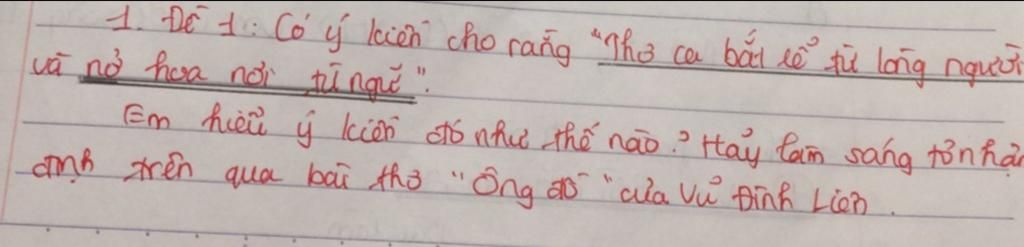 1. Đề 1: Có ý kiến cho rằng "Thơ ca bắt rễ từ lòng người
và nở hoa nơi từ ngữ".
Em hiểu ý kiến đó như thế nào? Hãy làm sáng tỏ nhận
định trên qua bài thơ "Ông đồ" của Vũ Đình Liên.